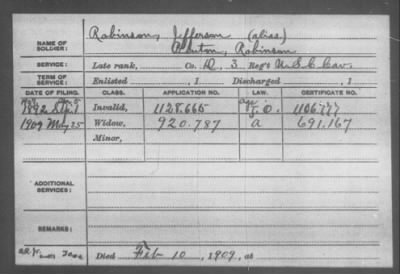 Robinson, Jefferson (alias)
NAME OF SOLDIER: Benton, Robinson
SERVICE: Late rank, Co. D, 3 Reg't U.S.C. Cav.
TERM OF SERVICE: Enlisted , 1 Discharged , 1
DATE OF FILING. CLASS. APPLICATION NO. LAW. CERTIFICATE NO.
1892 Invalid, 1128.665 G.O. 1106777
1909 May 25 Widow, 920.787 a 691.167
Minor,
ADDITIONAL SERVICES:
REMARKS:
Died Feb 10, 1909, at